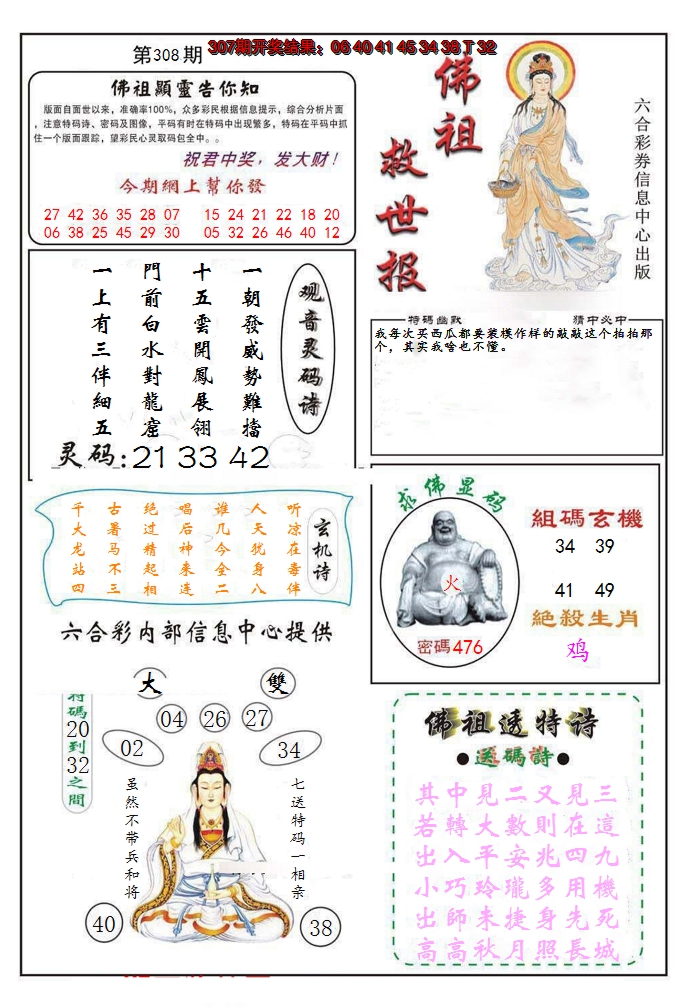 第308期
307期开奖结果：06 40 41 45 34 38 T 32
佛祖顯靈告你知
版面自面世以来，准确率100%，众多彩民根据信息提示，综合分析片面
，注意特码诗、密码及图像，平码有时在特码中出现繁多，特码在平码中抓
住一个版面跟踪，望彩民心灵取码包全中。。
祝君中奖，发大财！
今期網上幫你發
27 42 36 35 28 07 15 24 21 22 18 20
06 38 25 45 29 30 05 32 26 46 40 12
佛祖
救世报
六合彩券信息中心出版
观音灵码诗
一朝發威勢難擋
十五雲開鳳展翎
門前白水對龍窟
一上有三伴細五
灵码:21 33 42
特碼幽默
猜中必中
我每次买西瓜都要装模作样的敲敲这个拍拍那
个，其实我啥也不懂。
玄机诗
听凉在毒伴
人天犹身八
谁几今全二
唱后神来连
绝过精起相
古暑马不三
千大龙站四
六合彩内部信息中心提供
求佛显码
火
密碼476
組碼玄機
34 39
41 49
絕殺生肖
鸡
大
雙
特碼20到32之間
04
26
27
02
34
虽然不带兵和将
七送特码一相亲
40
38
佛祖透特诗
●送碼詩●
其中見二又見三
若轉大數則在這
出入平安兆四九
小巧玲瓏多用機
出師未捷身先死
高高秋月照長城